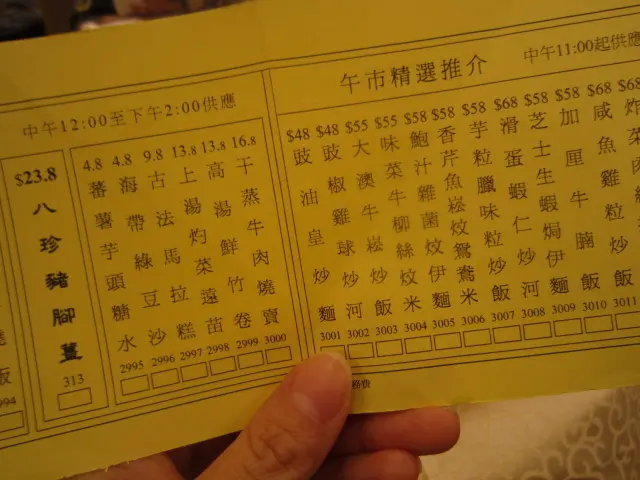 中午12:00至下午2:00供應
午市精選推介
中午11:00起供應
$23.8
八珍豬腳薑
313
4.8
蕃薯芋頭糖水
2995
4.8
海帶綠豆沙
2996
9.8
古法馬拉糕
2997
13.8
上湯灼菜遠
2998
13.8
高湯鮮竹苗
2999
16.8
干蒸牛肉燒賣
3000
$48
豉油皇炒麵
3001
$48
豉椒雞球炒河
3002
$55
大澳牛崧炒飯
3003
$55
味菜牛柳絲炆米
3004
$58
鮑汁雜菌炆伊麵
3005
$58
香芹魚崧炆鴛鴦米
3006
$58
芋粒臘味粒炒飯
3007
$68
滑蛋蝦仁炒河
3008
$58
芝士生蝦焗伊麵
3009
$58
加厘牛腩飯
3010
$68
咸魚雞粒炒飯
3011
$68
炸菜肉
994
飯
務費